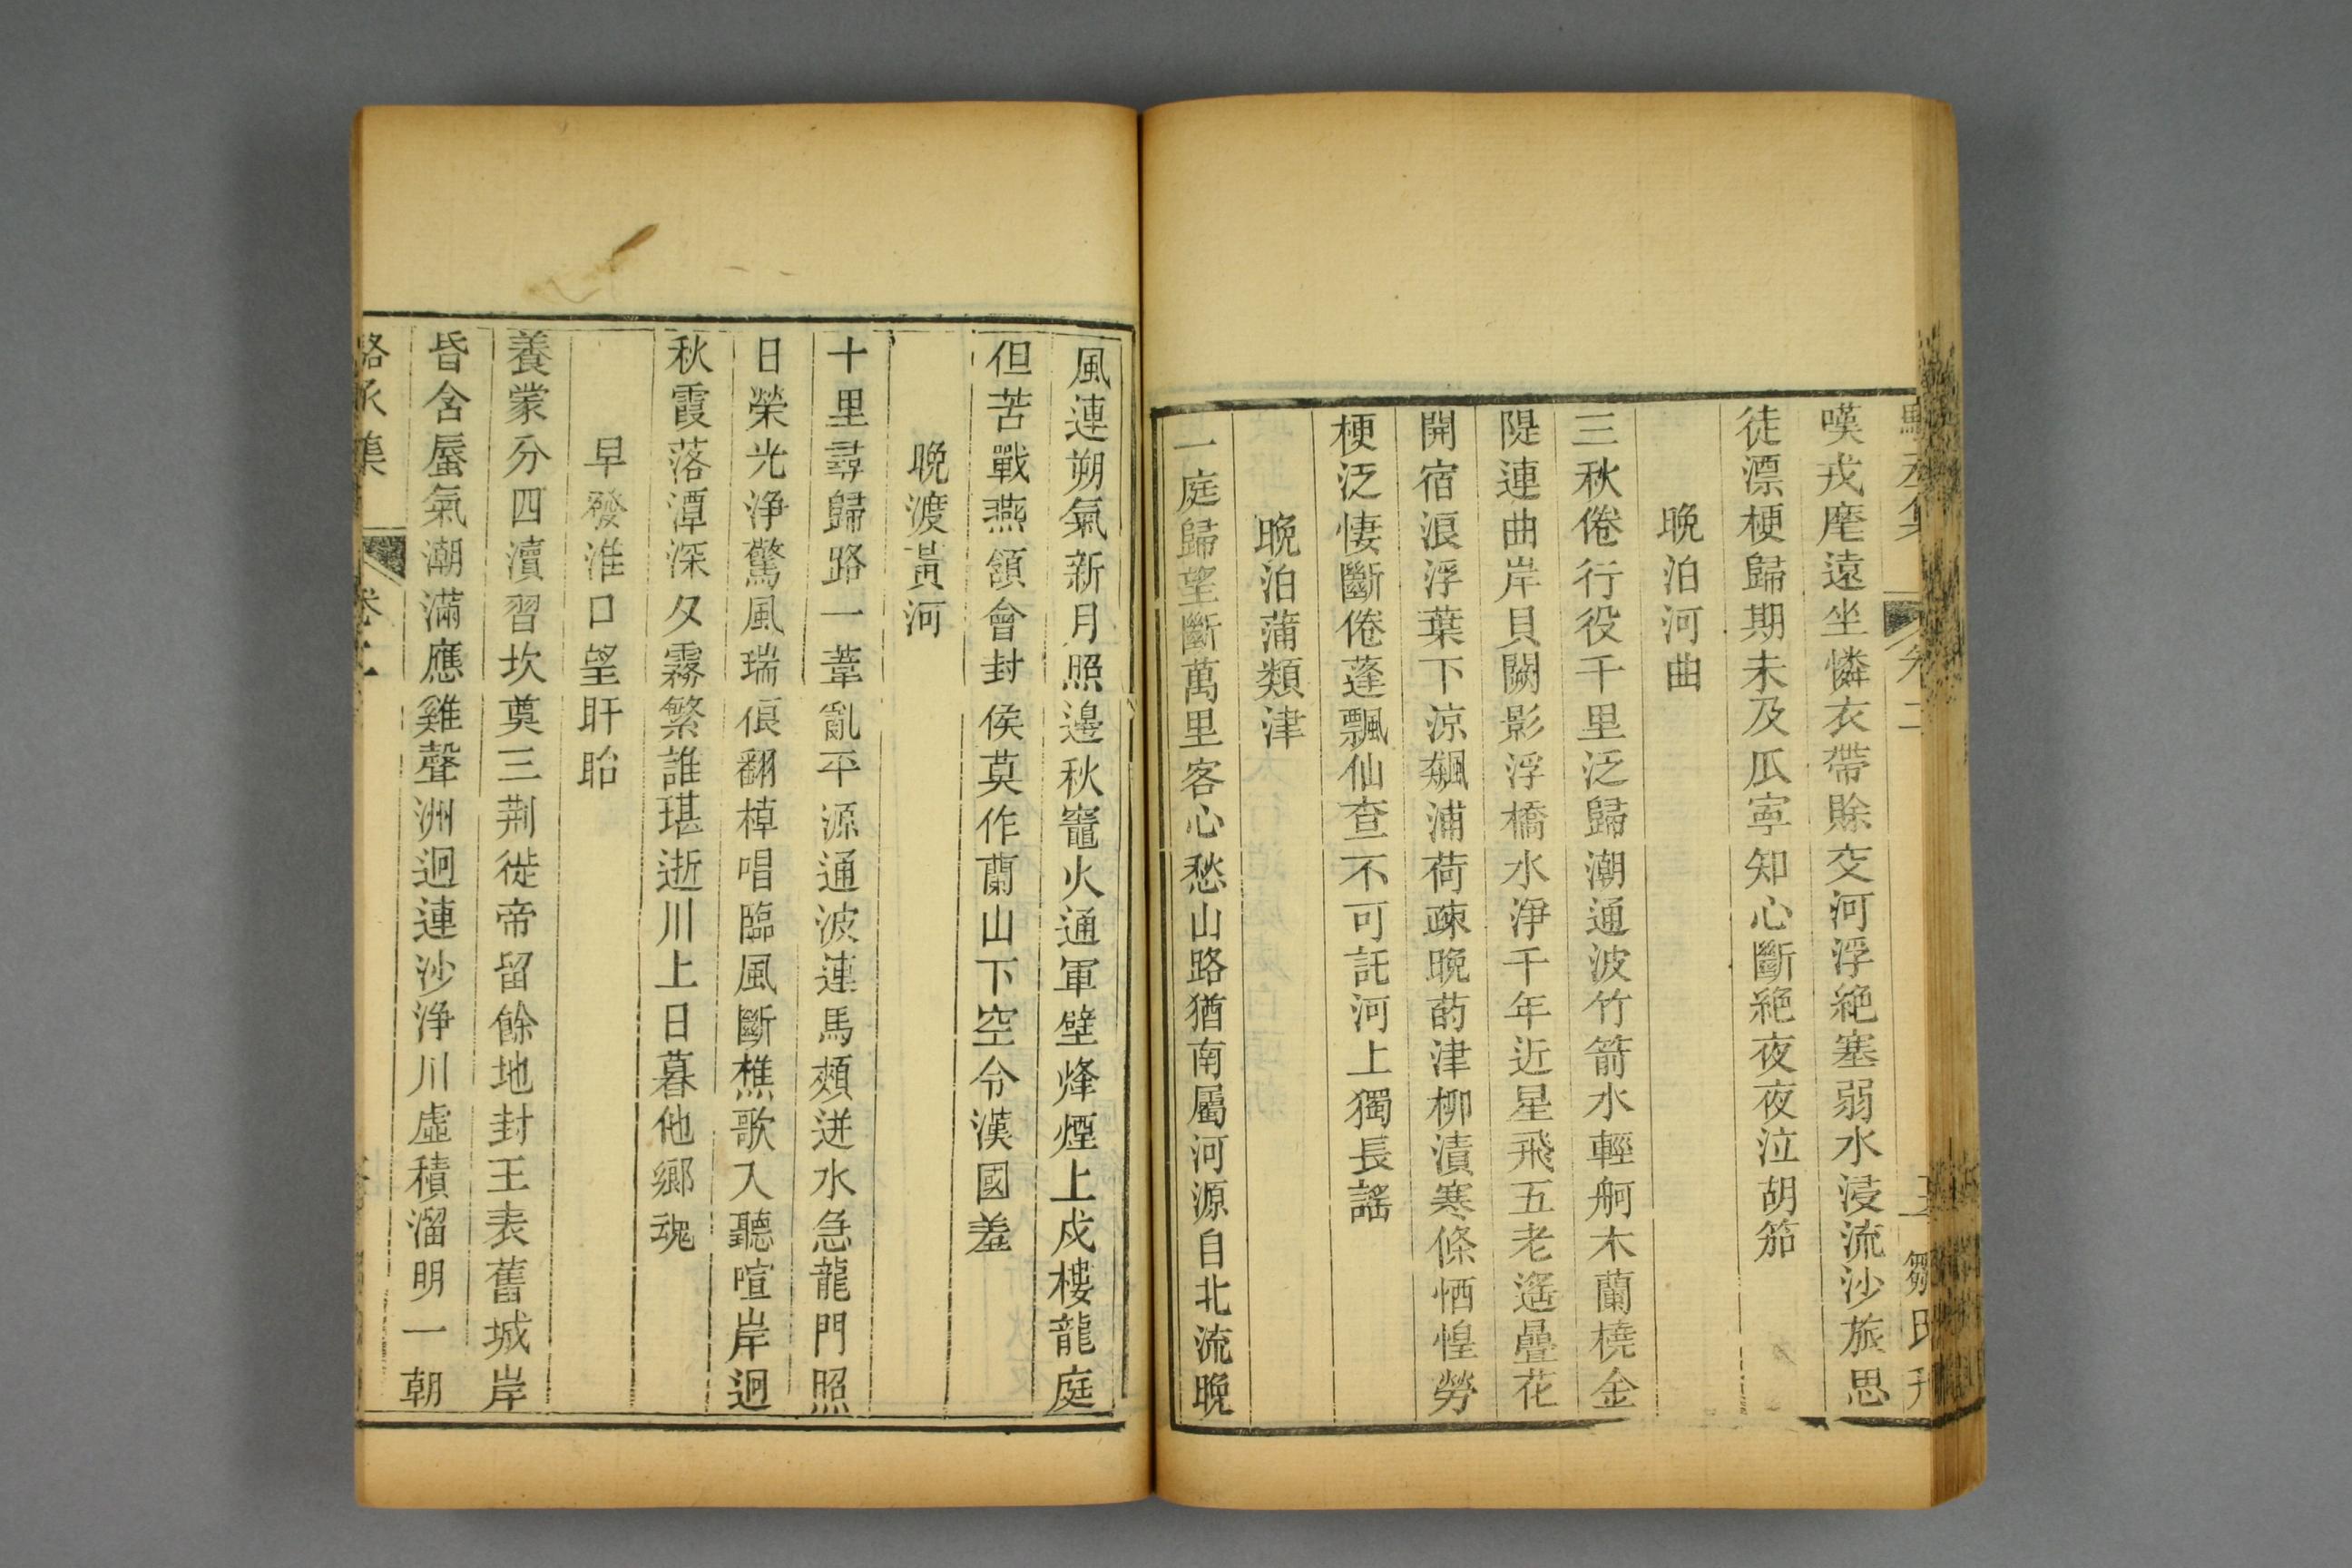 嘆戎麾遠坐憐衣帶賒交河浮絶塞弱水浸流沙旅思
徒漂梗歸期未及瓜寧知心斷絶夜夜泣胡笳
晩泊河曲
三秋倦行役千里泛歸潮通波竹箭水輕舸木蘭橈金
隄連曲岸貝闕影浮橋水淨千年近星飛五老遙疊花
開宿浪浮葉下涼飊浦荷疎晩菂津柳漬寒條恓惶勞
梗泛悽斷倦蓬飄仙查不可託河上獨長謠
晩泊蒲類津
一庭歸望斷萬里客心愁山路猶南屬河源自北流晩
風連朔氣新月照邊秋竈火通軍壁烽煙上戍樓龍庭
但苦戰燕頷會封侯莫作蘭山下空令漢國羞
晩渡黃河
十里尋歸路一葦亂平源通波連馬頰迸水急龍門照
日榮光淨驚風瑞浪翻棹唱臨風斷樵歌入聽喧岸迥
秋霞落潭深夕霧繁誰堪逝川上日暮他鄉魂
早發淮口望盱眙
養蒙分四瀆習坎奠三荆徙帝留餘地封王表舊城岸
昏含蜃氣潮滿應雞聲洲迥連沙淨川虛積溜明一朝